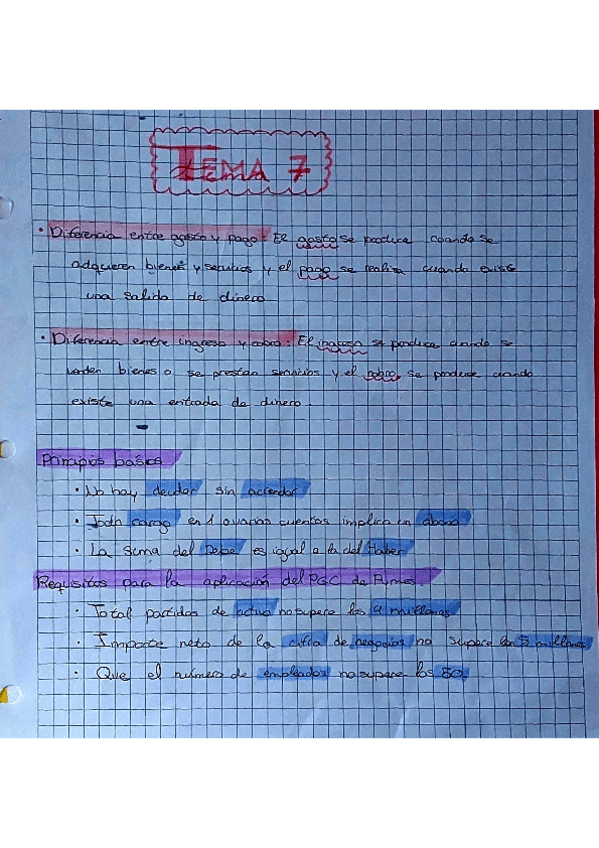 TEMA 7
· Diferencia entre gasto y pago: El gasto se produce cuando se
adquieren bienes y servicios y el pago se realiza cuando existe
una salida de dinero
· Diferencia entre ingreso y cobro: El ingreso se produce cuando se
venden bienes o se prestan servicios y el cobro se produce cuando
existe una entrada de dinero.
Principios basicos
· No hay deudor sin acreedor
· Todo cargo en 1 o varias cuentas implica un abono
· La suma del Debe es igual a la del Haber
Requisitos para la aplicación del PGC de Pymes
· Total partidas de activo no supere los 4 millones
· Importe neto de la cifra de negocios no supere los 8 millones
· Que el número de empleados no supere los 50